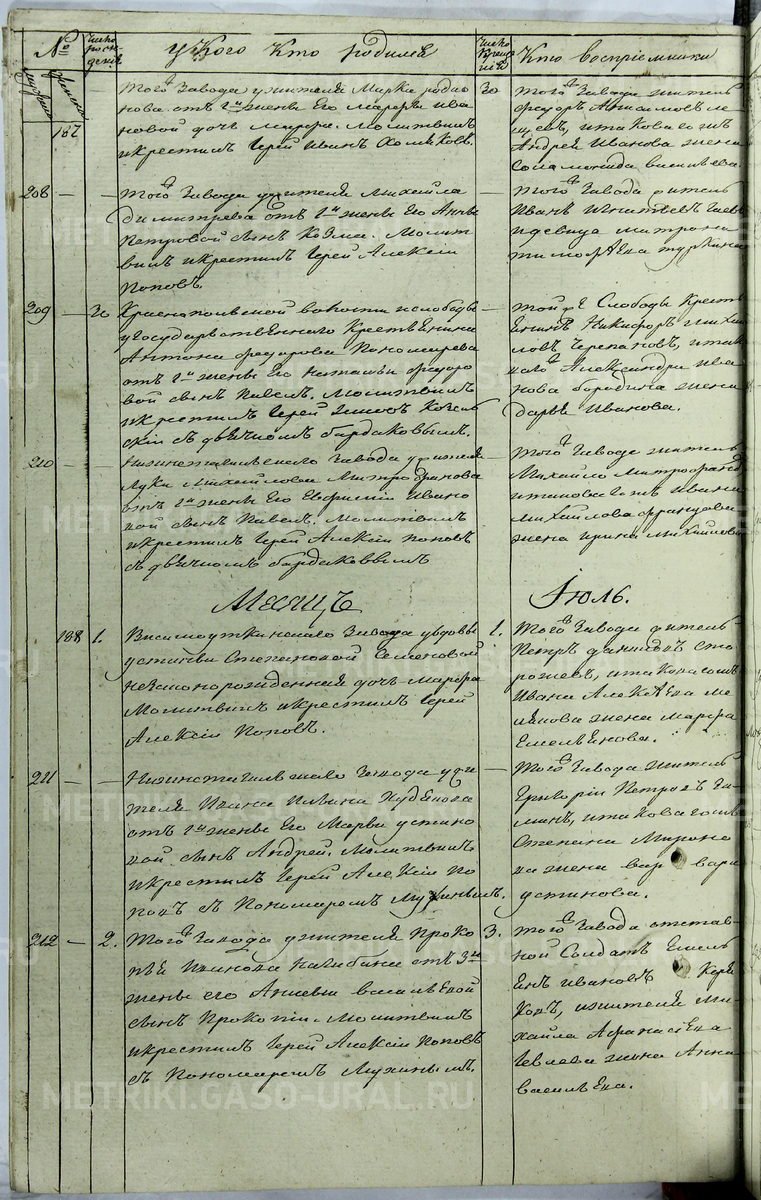 № Число рожденія У кого кто родился Число крещенія Кто воспріемники
мужеска женска
187 Того завода у жителя Марка Родио
нова отъ 1й жены его Марфы Ива
новой дочь Марфа. Молитвилъ
и крестилъ Іерей Иванъ Хомяковъ.
30 Того завода житель
Федоръ Анисимовъ
и такова жъ
Андрея Иванова жена
Соломонида Васильева
208 Того завода у жителя Михайла
Димитрева отъ 1й жены его Анны
Петровой сынъ Козма. Молит
вилъ и крестилъ Іерей Алексій
Поповъ.
Того завода житель
Иванъ Игнатьевъ
и девица Матрона
Тимофеева
209 Краснопольской волости и слободы
у государственнаго крестьянина
Антона Федорова Пономарева
отъ 1й жены его Натальи Федоро
вой сынъ Павелъ. Молитвилъ
и крестилъ Іерей
съ дьячкомъ Бардаковымъ.
той же слободы кресть
янинъ Никифоръ Михай
ловъ Черепановъ, и так
коваго Александра Ива
нова Бородина жена
Дарья Иванова.
210 Нижнетагильскаго завода у жителя
Луки Михайлова Митрофанова
отъ 1й жены его Евфросиніи Ивано
вой сынъ Павелъ. Молитвилъ
и крестилъ Іерей Алексій Поповъ
съ дьячкомъ Бардаковымъ
Того завода житель
Михайло Митрофановъ
и такова жъ Ивана
Михайлова
жена Ирина Михайлова
Месяцъ Іюль.
188 1. Висимоуткинскаго завода у вдовы
Устиньи Степановой Семеновой
незаконорожденная дочь Марфа
Молитвилъ и крестилъ Іерей
Алексій Поповъ.
1. Того завода житель
Петръ Даниловъ Сто
рожевъ, и такова жъ
Ивана Алексеева Ме
лехова жена Марфа
Емельянова.
211 Нижнетагильскаго завода у жи
теля Ивана Ильина Худякова
отъ 1й жены его Марьи Устино
вой сынъ Андрей. Молитвилъ
и крестилъ Іерей Алексій По
повъ съ пономаремъ Мухинымъ.
Того завода житель
Григорій Петровъ Га
линъ, и такова жъ
Степана Мироно
ва жена Варвара
Устинова.
212 2. Того завода у жителя Проко
пья Иванова Калабина отъ 3й
жены его Анисьи Васильевой
сынъ Прокопій. Молитвилъ
и крестилъ Іерей Алексій Поповъ
съ пономаремъ Мухинымъ.
3. Того завода отстав
ной солдатъ Емель
янъ Ивановъ
и жителя Ми
хайла Афанасьева
жена Анна
Васильева.
METRIKI.GASO-URAL.RU